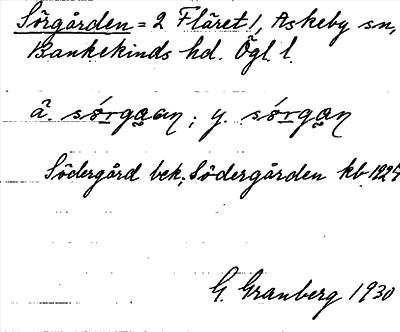 Sörgården = 2 Fläret 1, Askeby sn,
Bankekinds hd. Ögl l.
ä. sǿrgaan; y. sǿrgan
Södergård bek; Södergården kb 1924
G. Granberg 1930